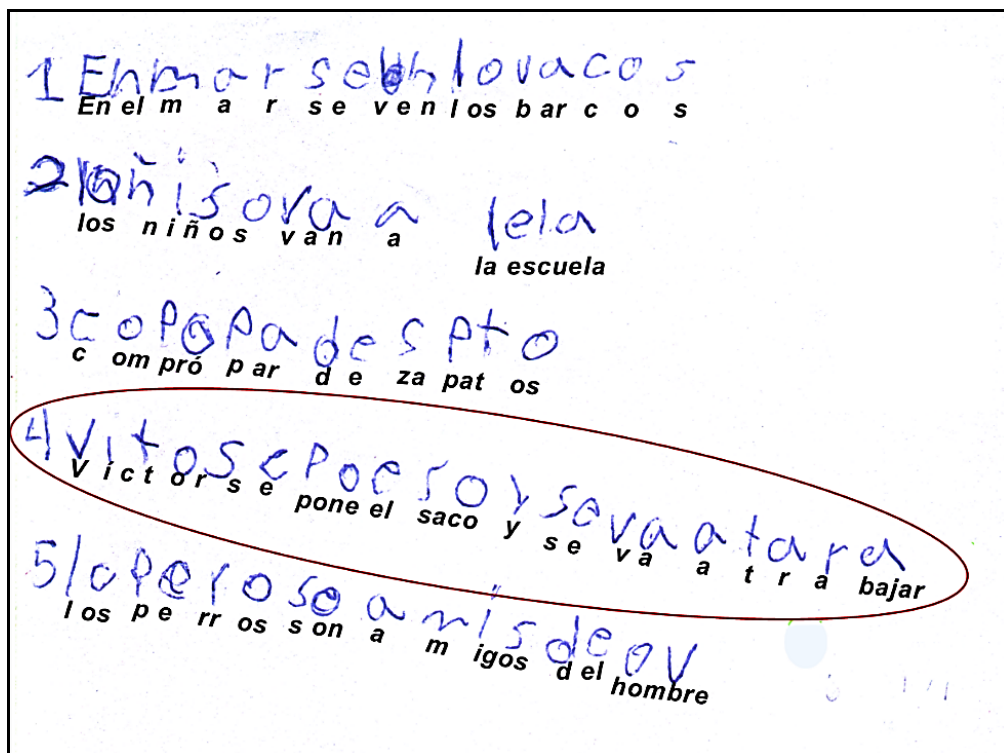 1 Enmar sevenlovacos
En el m a r se ven los bar c o s
2 loñisova a lela
los niños van a la escuela
3 copopa de s pto
c om pró par d e za pat os
4 Vitosepoesoysevaatara
Victor se pone el saco y se va a t r a bajar
5 loperosoamisdeov
los pe rr os son a m igos del hombre